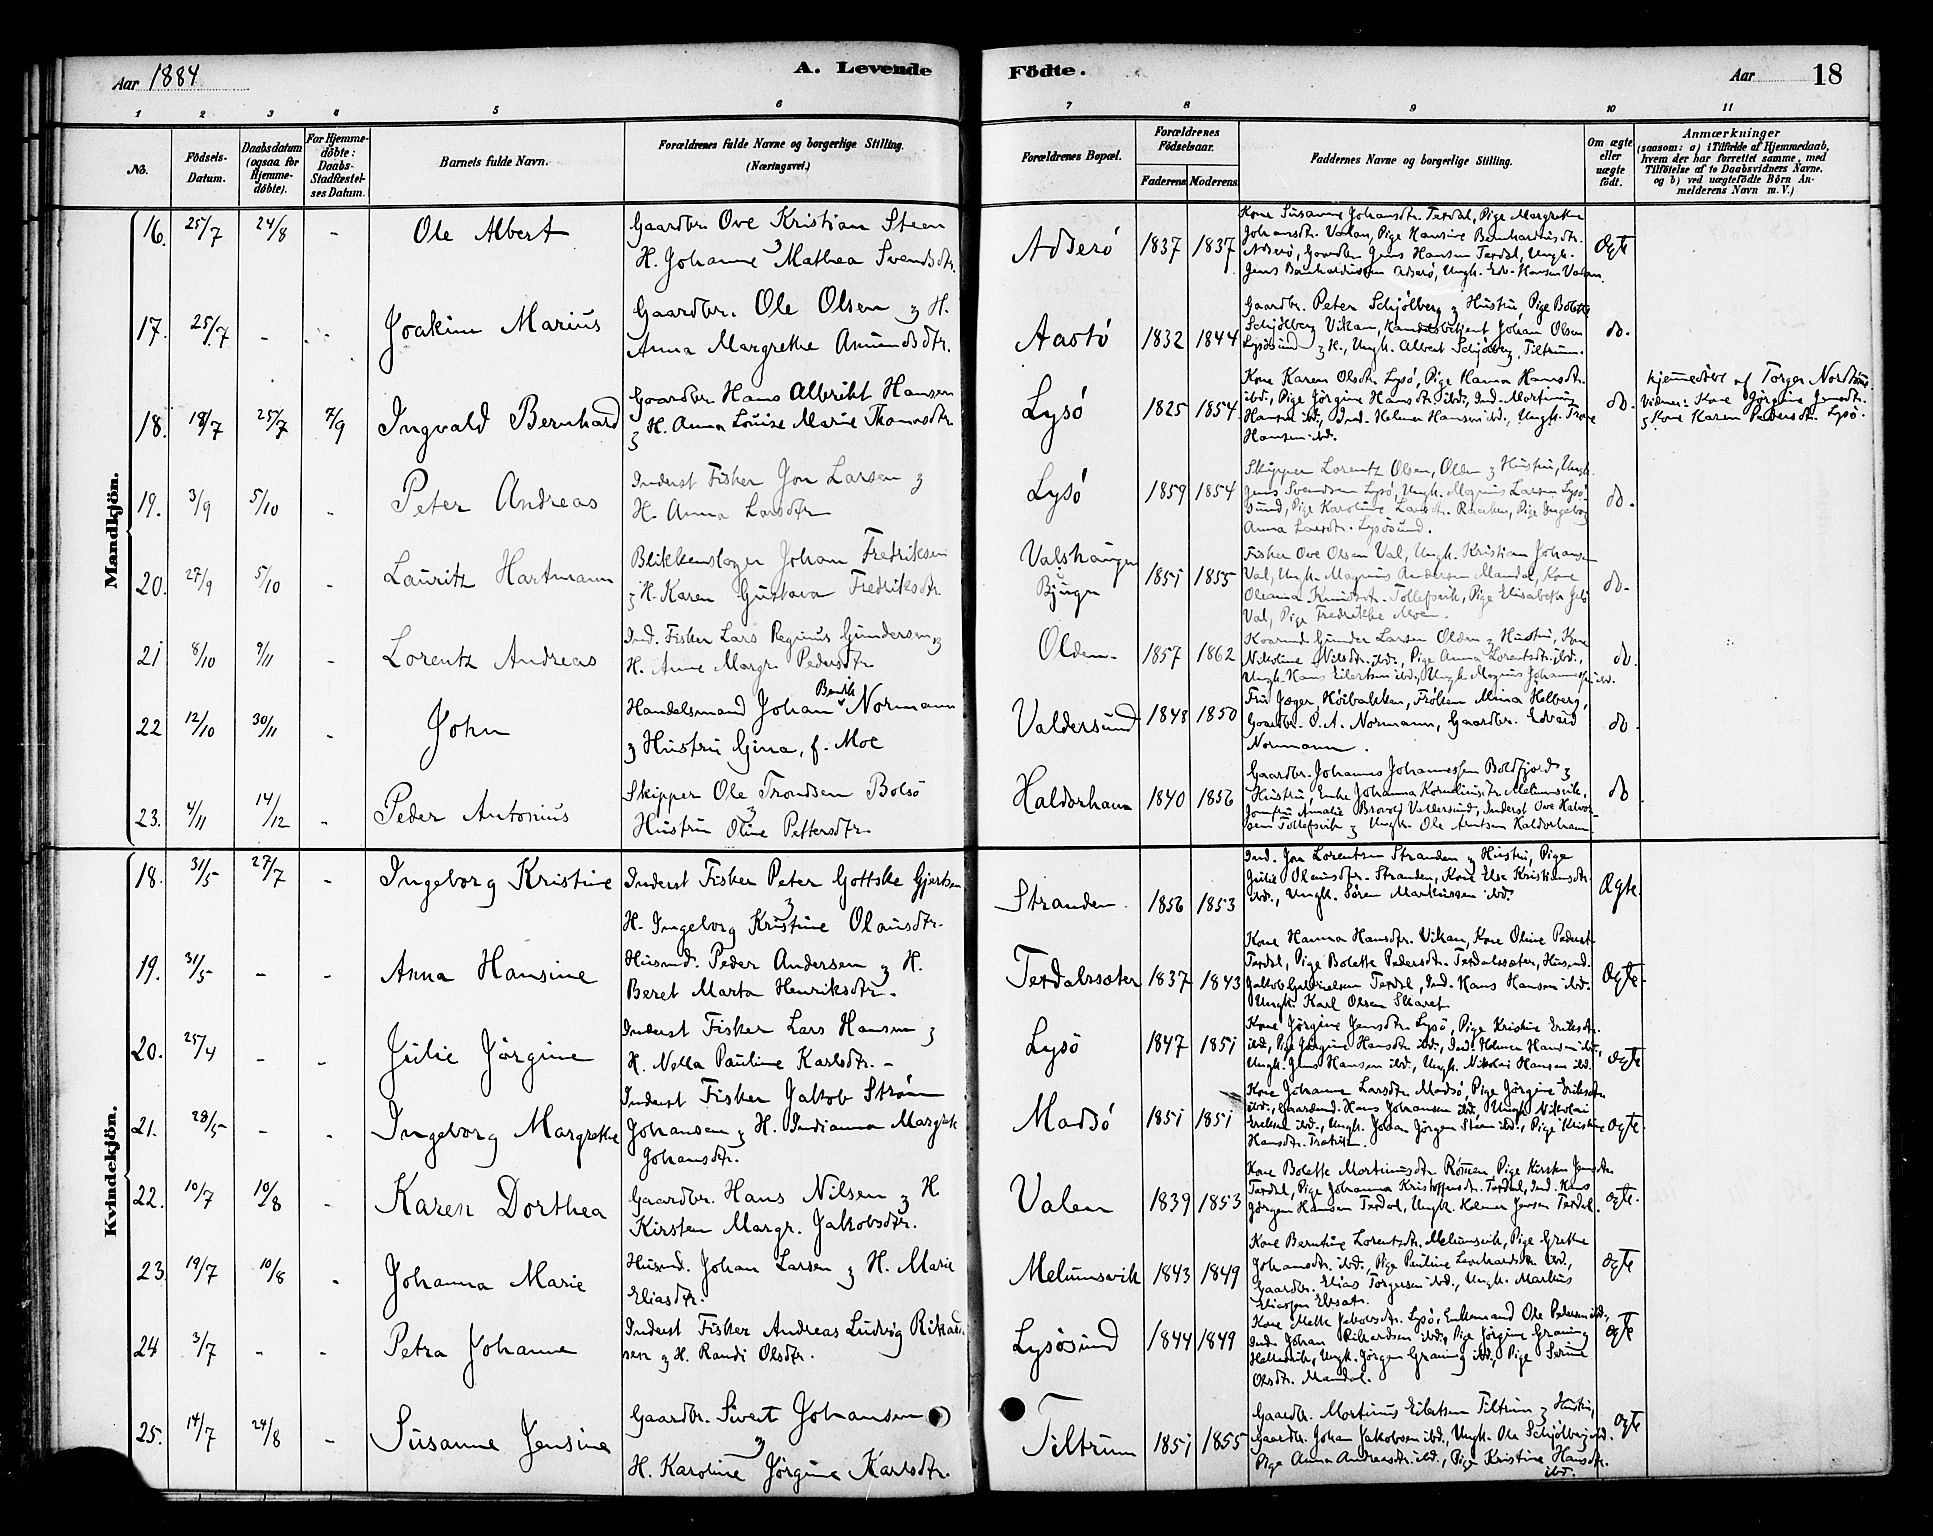 Aar 1884
A. Levende
Födte.
Aar
18
1 2 3 4 5 6 7 8 9 10 11
No.
Födsels-Datum.
Daabsdatum (ogsaa for Hjemmedöbte).
For Hjemmedöbte: Daabs-Stadfæstelses Datum.
Barnets fulde Navn.
Forældrenes fulde Navne og borgerlige Stilling. (Næringsvei.)
Forældrenes Bopæl.
Forældrenes Födselsaar.
Faderens Moderens
Faddernes Navne og borgerlige Stilling.
Om ægte eller uægte födt.
Anmærkninger
(saasom: a) i Tilfælde af Hjemmedaab, hvem der har forrettet samme, med Tilföielse af to Daabsvidners Navne, og b) ved uægtefödte Börn Anmelderens Navn m. V.)
Mandkjön.
16. 25/7 24/8 - Ole Albert
Gaardbr. Ove Kristian Steen
H. Johanne Mathea Svendsdtr.
1837 1837
Kone Susanne Johansdtr. Terdal, Pige Margrethe
Johansdtr. Valan, Pige Hansine Bernhardusdtr.
Gaardbr. Jens Hansen Terdal, Ungk.
Ægte
17. 25/7 - Joakim Marius
Gaardbr. Ole Olsen & H.
Anna Margrethe Amundsdtr.
1832 1844
Gaardbr. Peter Schjölberg & Hustru, Pige Bolette
Schjölberg Vikan, Handelsbetjent Johan Olsen
Lysösund & H., Ungk. Albert Schjölberg, Tiltrum.
do.
18. 18/7 25/7 7/9 Ingvald Bernhard
Gaardbr. Hans Albrikt Hansen
& H. Anna Louise Marie Thomasdtr.
Lysö 1825 1854
Kone Karen Olsdtr. Lysö, Pige Hanna Hansdtr.
ibd., Pige Jörgine Hansdtr. ibd., Ind. Martinus
Hansen ibd., Ind. Helmer Hansen ibd., Ungk.
Hansen ibd.
do.
Hjemmedöbt af Torger
Vidner: Kone Jörgine Jensdtr.
& Kone Karen Pedersdtr. Lysö.
19. 3/9 5/10 - Peter Andreas
Inderst Fisker Jon Larsen &
H. Anna Larsdtr.
Lysö 1859 1854
Skipper Lorentz Olsen, Olden & Hustru, Ungk.
Jens Svendsen Lysö, Ungk. Magnus Larsen Lysö
sund, Pige Karoline Larsdtr. Pige Ingeborg
Anna Larsdtr. Lysösund.
do.
20. 27/9 5/10 - Lauritz Hartmann
Blikkenslager Johan Fredriksen
& H. Karen Gustava Fredriksdtr.
Valshaugen
Bjugn
1851 1855
Fisker Ove Olsen Val, Ungk. Kristian Johansen
Val, Ungk. Magnus Andersen Mandal, Kone
Oleanna Knudsdtr. Tollefsvik, Pige Elisabeth
Val, Pige Fredrikke Moen.
do.
21 8/10 9/11 - Lorentz Andreas
Ind. Fisker Lars Reginus Gundersen &
H. Anne Margr. Pedersdtr.
Olden. 1857 1862
Gunder Larsen Olden & Hustru, Kone
Nikoline Nilsdtr. ibd., Pige Anna Lorentsdtr. ibd.,
Ungk. Hans Eilertsen ibd., Ungk. Magnus Johannessen ibd.
do.
22 12/10 30/11 - John
Handelsmand Johan Bendik Normann
& Hustru Gina, f. Moe
Valdersund 1848 1850
Fru Jæger, Höibakken, Fröken Mina Holberg,
Gaardbr. O. A. Normann, Gaardbr. Edvard
Normann.
do.
23. 4/11 14/12 - Peder Antonius
Skipper Ole Trondsen Bolsö
& Hustru Oline Pettersdtr.
Haldorhavn 1840 1856
Gaardbr. Johannes Johannessen Boldfjord &
Hustru, Enke Johanna Korneliusdtr. Melumsvik,
Jomfru Amalie Valdersund, Inderst Ove Halvor
sen Tollefsvik & Ungk. Ole Arntsen Haldorhavn
do
Kvindekjön.
18. 31/5 27/7 - Ingeborg Kristine
Inderst Fisker Peter Gottske Gjertsen
&
H. Ingeborg Kristine Olausdtr.
Stranden. 1856 1853
Ind. Jon Lorentsen Stranden & Hustru, Pige
Julie Olausdtr. Stranden, Kone Else Kristiansdtr.
ibd., Ungk. Sören Markussen ibd.
Ægte.
19. 31/5 - - Anna Hansine
Husmd. Peder Andersen & H.
Beret Marta Henriksdtr.
Terdalssæter 1837 1843
Kone Hanna Hansdtr. Vikan, Kone Oline Pedersdtr.
Terdal, Pige Bolette Pedersdtr. Terdalssæter, Husmd.
Jakob Gabrielsen Terdal, Ind. Hans Hansen ibd.
Ungk. Karl Olsen Skaret
Ægte.
20. 25/4 - - Julie Jörgine
Inderst Fisker Lars Hansen &
H. Nella Pauline Karlsdtr.
Lysö 1847 1851
Kone Jörgine Jensdtr. Lysö, Pige Kristine Eriksdtr.
ibd., Pige Jörgine Hansdtr. ibd., Ind. Helmer Hansen ibd.,
Ungk. Jens Hansen ibd., Ungk. Nikolai Hansen ibd.
ægte
21. 28/5 - - Ingeborg Margrethe
Inderst Fisker Jakob Ström
Johansen & H. Indianna Margrete
Johansdtr.
Madsö 1851 1851
Kone Johanne Larsdtr. Madsö, Pige Jörgine Eriksdtr.
ibd., Hans Johansen ibd., Ungk. Nikolai
Eriksen ibd., Ungk. Johan Jörgen Steen ibd., Pige Kristine
Hansdtr.
ægte.
22. 10/7 10/8 - Karen Dorthea
Gaardbr. Hans Nilsen & H.
Kirsten Margr. Jakobsdtr.
Valen 1839 1853
Kone Bolette Martinusdtr. Pige Kirsten Jensdtr.
Terdal, Pige Johanna Kristoffersdtr. Terdal, Ind. Hans
Jörgen Hansen Terdal, Ungk. Helmer Jensen Terdal.
ægte.
23. 19/7 10/8 - Johanna Marie
Husmd. Johan Larsen & H. Marie
Eliasdtr.
Melumsvik 1843 1849
Kone Berntine Lorentzdtr. Melumsvik, Pige Grethe
Johansdtr. ibd., Pige Pauline Leonhardsdtr. ibd.,
Gaardbr. Elias Torgersen ibd., Ungk. Markus
Eliassen
ægte
24 3/7 - - Petra Johanne
Inderst Fisker Andreas Ludvig Rikard
sen & H. Randi Olsdtr.
Lysösund 1844 1849
Kone Mette Jakobsdtr. Lysö, Enkemand Ole Pedersen ibd.,
Ind. Johan Rikhardsen ibd., Pige Jörgine Graning
Ungk. Jörgen Graning ibd., Pige Serine
Olsdtr. Mandal.
ægte
25. 14/7 24/8 - Susanne Jensine
Gaardbr. Sivert Johansen
&
H. Karoline Jörgine Karlsdtr.
Tiltrum 1851 1855
Gaardbr. Martinus Eilertsen Tiltrum & Hustru,
Gaardbr. Johan Jakobsen ibd., Ungk. Ole Schjölberg ibd.
Pige Anna Andreasdtr. ibd., Pige Kristine Hansdtr.
ibd.
ægte